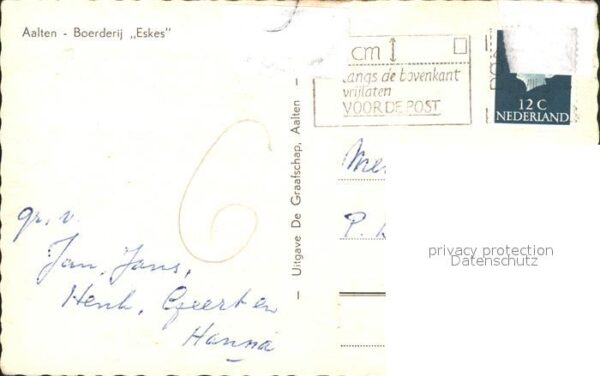 Aalten - Boerderij „Eskes"
cm
langs de bovenkant
vrijlaten
VOOR DE POST
12 C
NEDERLAND
Uitgave De Graafschap, Aalten
6
gr. v.
Jan, Jans,
Henk, Geert en
Hanna
P.
privacy protection
Datenschutz